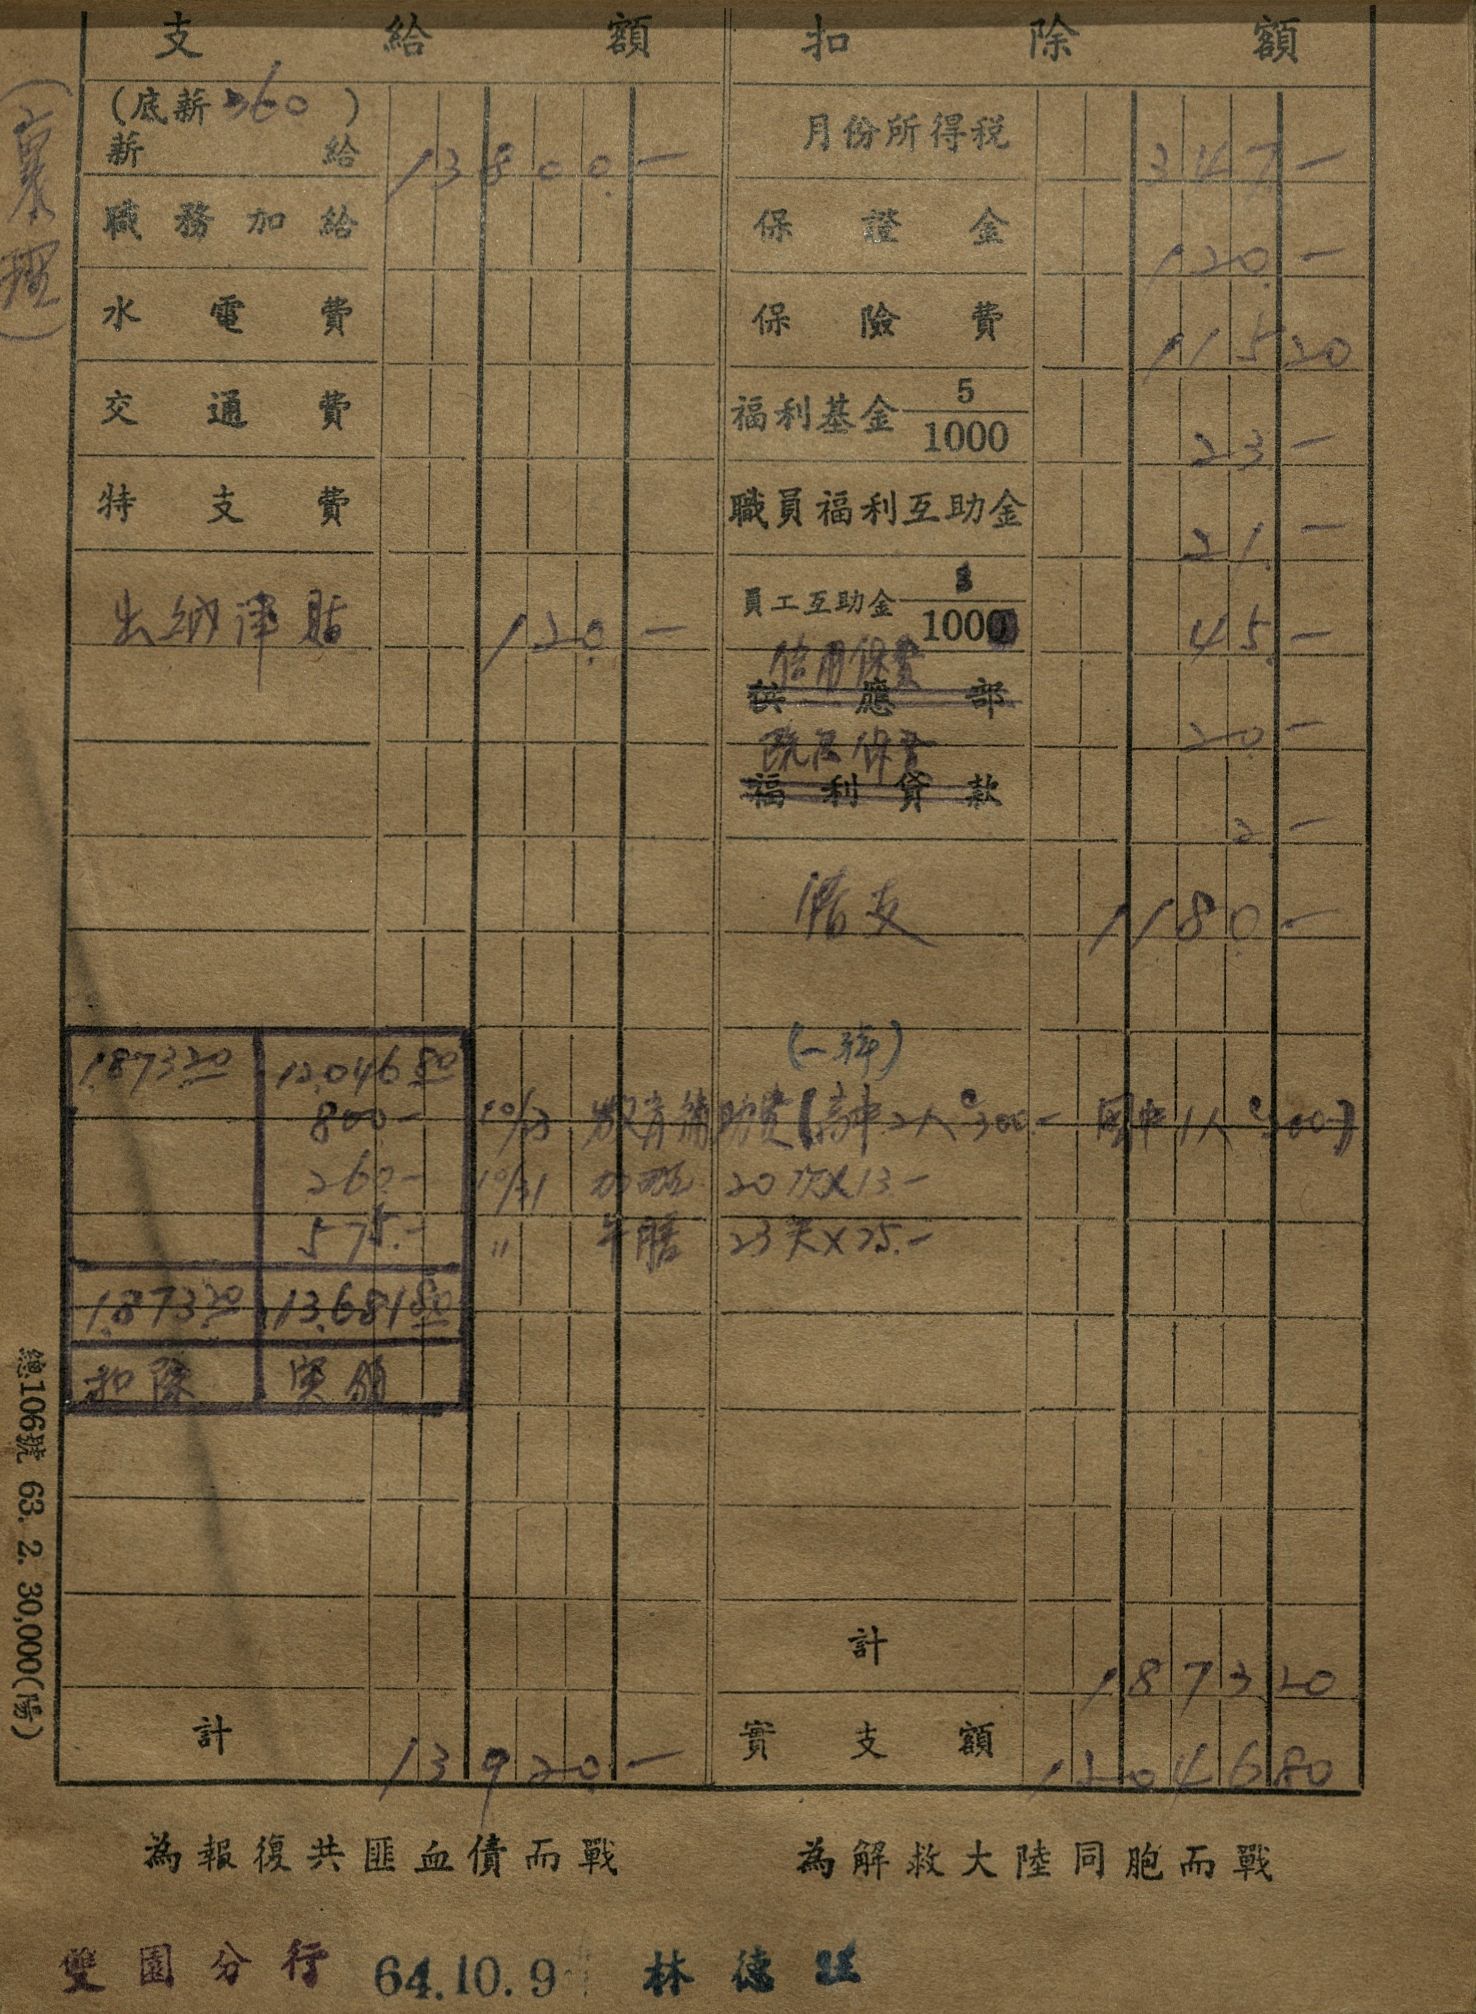 支給額 扣除額
(底薪360)
薪給 13800.—
月份所得稅 347.—
職務加給
保證金 120.—
水電費
保險費 115 20
交通費
福利基金 5/1000 23.—
特支費
職員福利互助金 21.—
出納津貼 120.—
員工互助金 3/1000 45.—
信用保費
供應部 20.—
福利貸款 2.—
借支 1180.—
1,873 20 12,046 80
800.— 10/23 教育補助費(高中2人@300.— 國中1人@200)
260.— 10/31 加班 20次×13.—
575.— 〃 午膳 23天×25.—
1,873 20 13,681 80
扣除 実領
計 1873 20
計 13920.—
實支額 12046 80
(襄理)
總106號 63. 2. 30,000(陽)
為報復共匪血債而戰 為解救大陸同胞而戰
雙園分行 64.10.9 林德旺